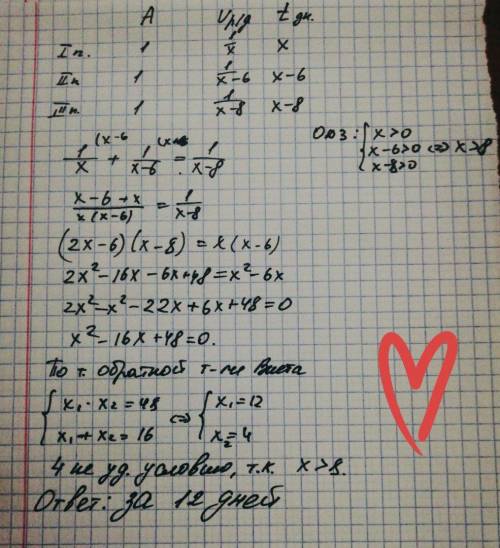 A Vр/д t дн.
I п. 1 1/x x
II п 1 1/(x-6) x-6
III п. 1 1/(x-8) x-8
1/x + 1/(x-6) = 1/(x-8)
ОДЗ: { x>0
x-6>0 ⇔ x>8
x-8>0
(x-6+x)/(x(x-6)) = 1/(x-8)
(2x-6)(x-8) = x(x-6)
2x²-16x-6x+48=x²-6x
2x²-x²-22x+6x+48=0
x²-16x+48=0.
По т. обратной т-ме Виета
{ x₁·x₂=48 ⇔ { x₁=12
x₁+x₂=16 x₂=4
4 не уд. условию, т.к. x>8.
Ответ: за 12 дней